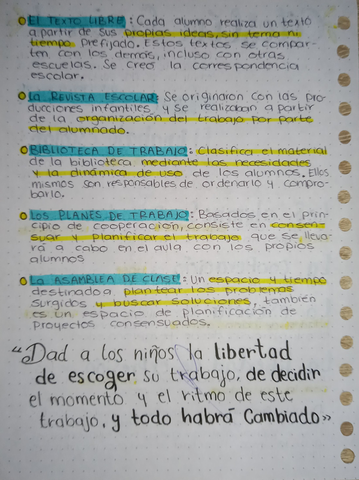 EL TEXTO LIBRE: Cada alumno realiza un texto
a partir de sus propias ideas, sin tema ni
tiempo prefijado. Estos textos se compar-
ten con los demás, incluso con otras
escuelas. Se creó la correspondencia
escolar.
La REVISTA ESCOLAR: Se originaron con las pro-
ducciones infantiles, y se realizaban a partir
de la organización del trabajo por parte
del alumnado.
BIBLIOTECA DE TRABAJO: Clasifica el material
de la biblioteca mediante las necesidades
y la dinámica de uso de los alumnos. Ellos
mismos son responsables de ordenarlo y compro-
barlo.
LOS PLANES DE TRABAJO: Basados en el prin-
cipio de cooperación, consiste en consen-
suar y planificar el trabajo que se lleva-
rá a cabo en el aula con los propios
alumnos
LA ASAMBLEA DE CLASE: Un espacio y tiempo
destinado a plantear los problemas
surgidos y buscar soluciones, también
es un espacio de planificación de
proyectos consensuados.
"Dad a los niños la libertad
de escoger su trabajo, de decidir
el momento y el ritmo de este
trabajo, y todo habrá Cambiado»